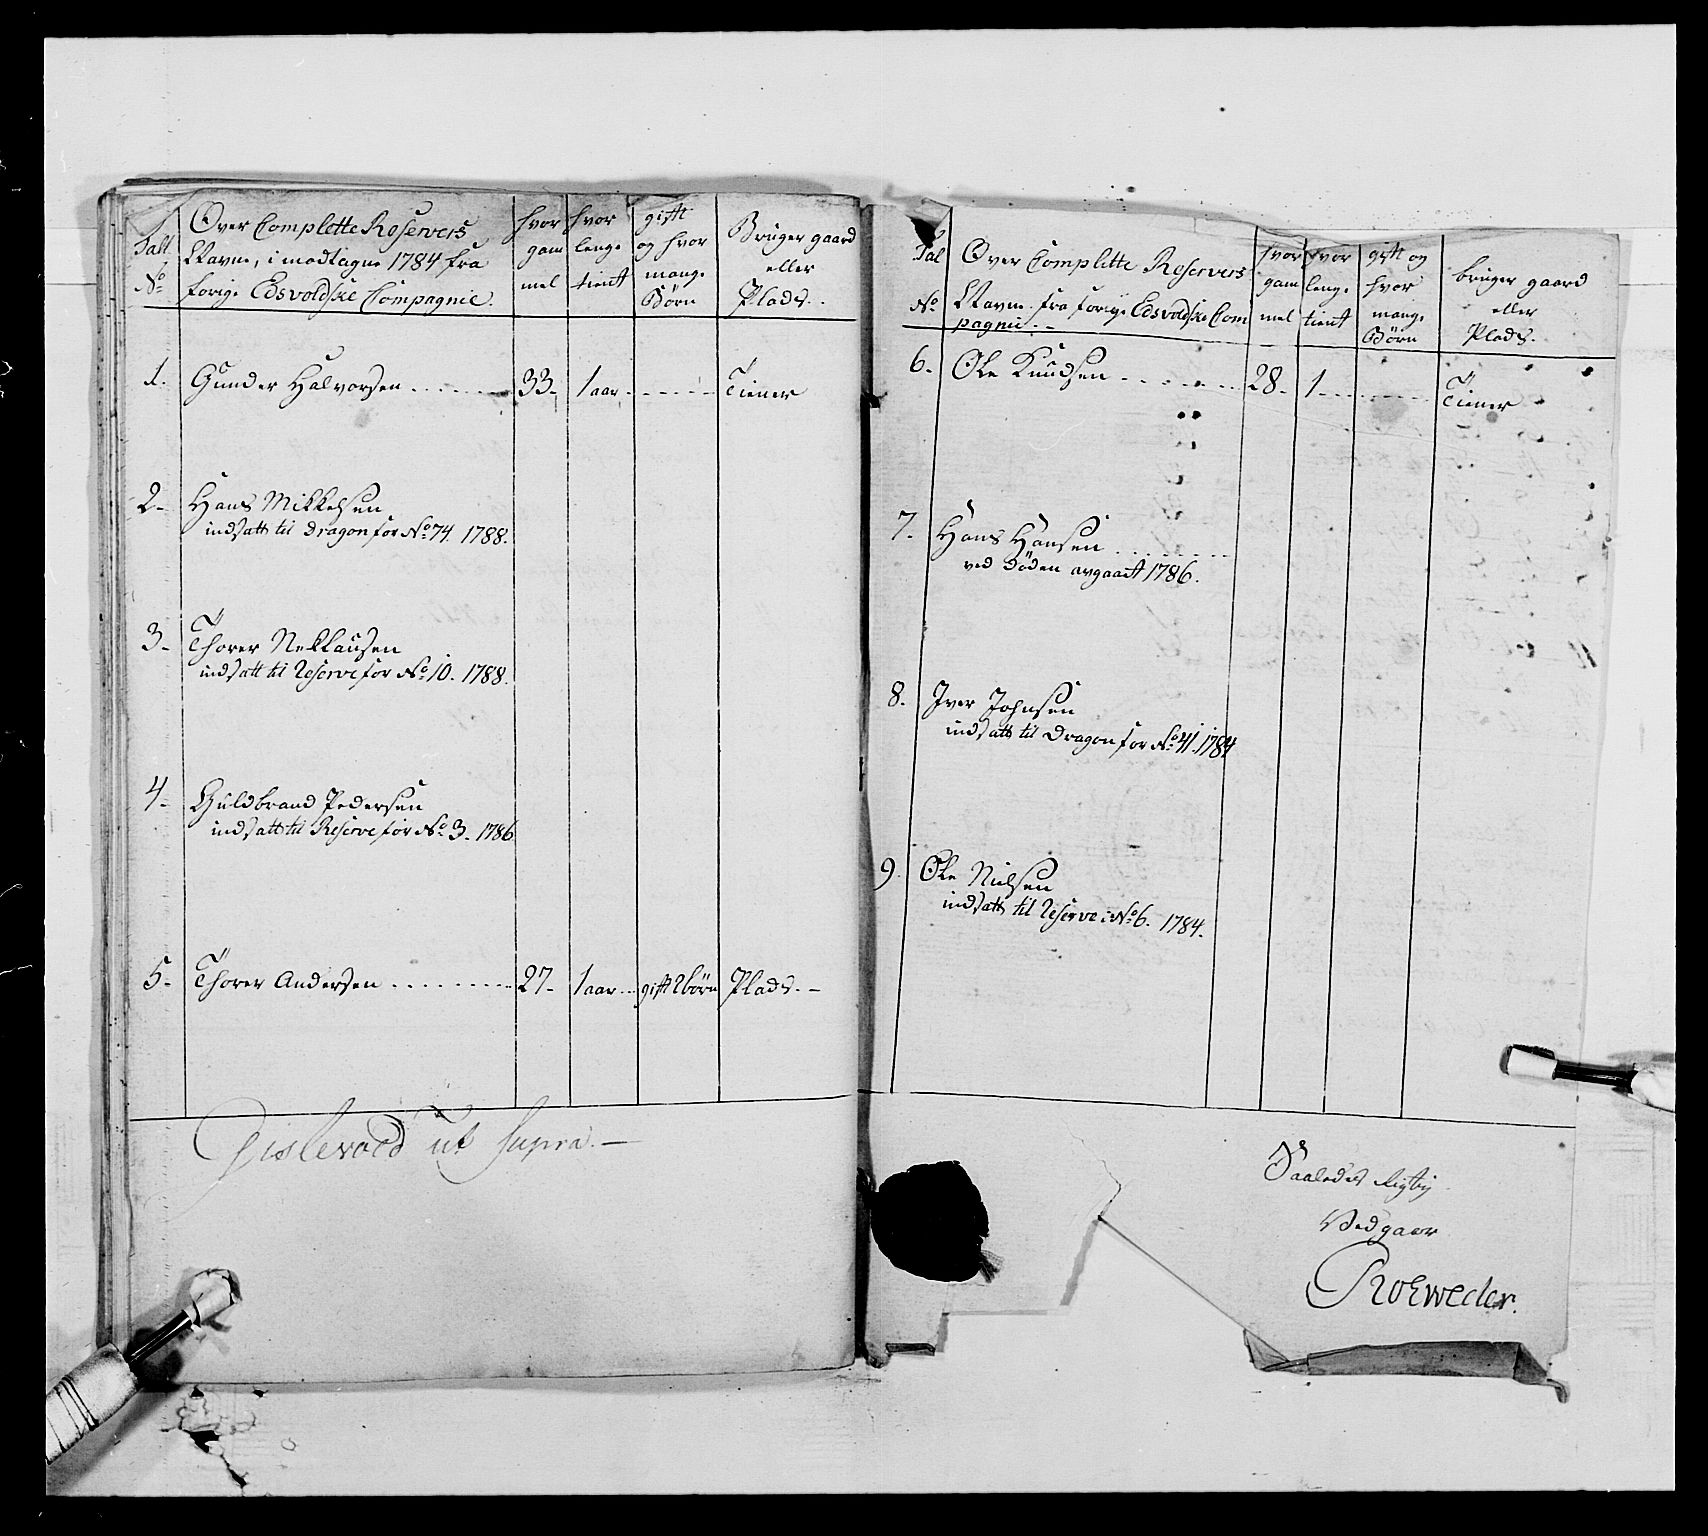 Tall No
Over Complette Reservers
Navne, i modtagne 1784 fra
forige Edsvoldske Compagnie.
hvor gam mel
hvor lenge tient
gift og hvor mange Börn
Bruger gaard eller Plads.
1. Gunder Halvorsen 33 1 aar Tiener
2. Hans Mikkelsen
indsatt til Dragon for No 74. 1788.
3. Thorer Nekkausen
indsatt til Reserve for No 10. 1788.
4. Guldbrand Pedersen
indsatt til Reserve for No 3. 1786
5. Thorer Andersen 27 1 aar gift 2 börn Plads.
ut Supra.
Tal No
Over Complette Reservers
Navne fra forige Edsvoldske Com
pagnie.
hvor gam mel
hvor lenge tient
gift og hvor mange Börn
bruger gaard eller Plads.
6. Ole Knudsen 28 1 Tiener
7. Hans Hansen
ved Döden avgaaet 1786.
8. Iver Johnsen
indsatt til Dragon for No 41. 1784
9. Ole Nielsen
indsatt til Reserve i No 6. 1784.
Saaledes rigtig
Vedgaar
Roeweder.